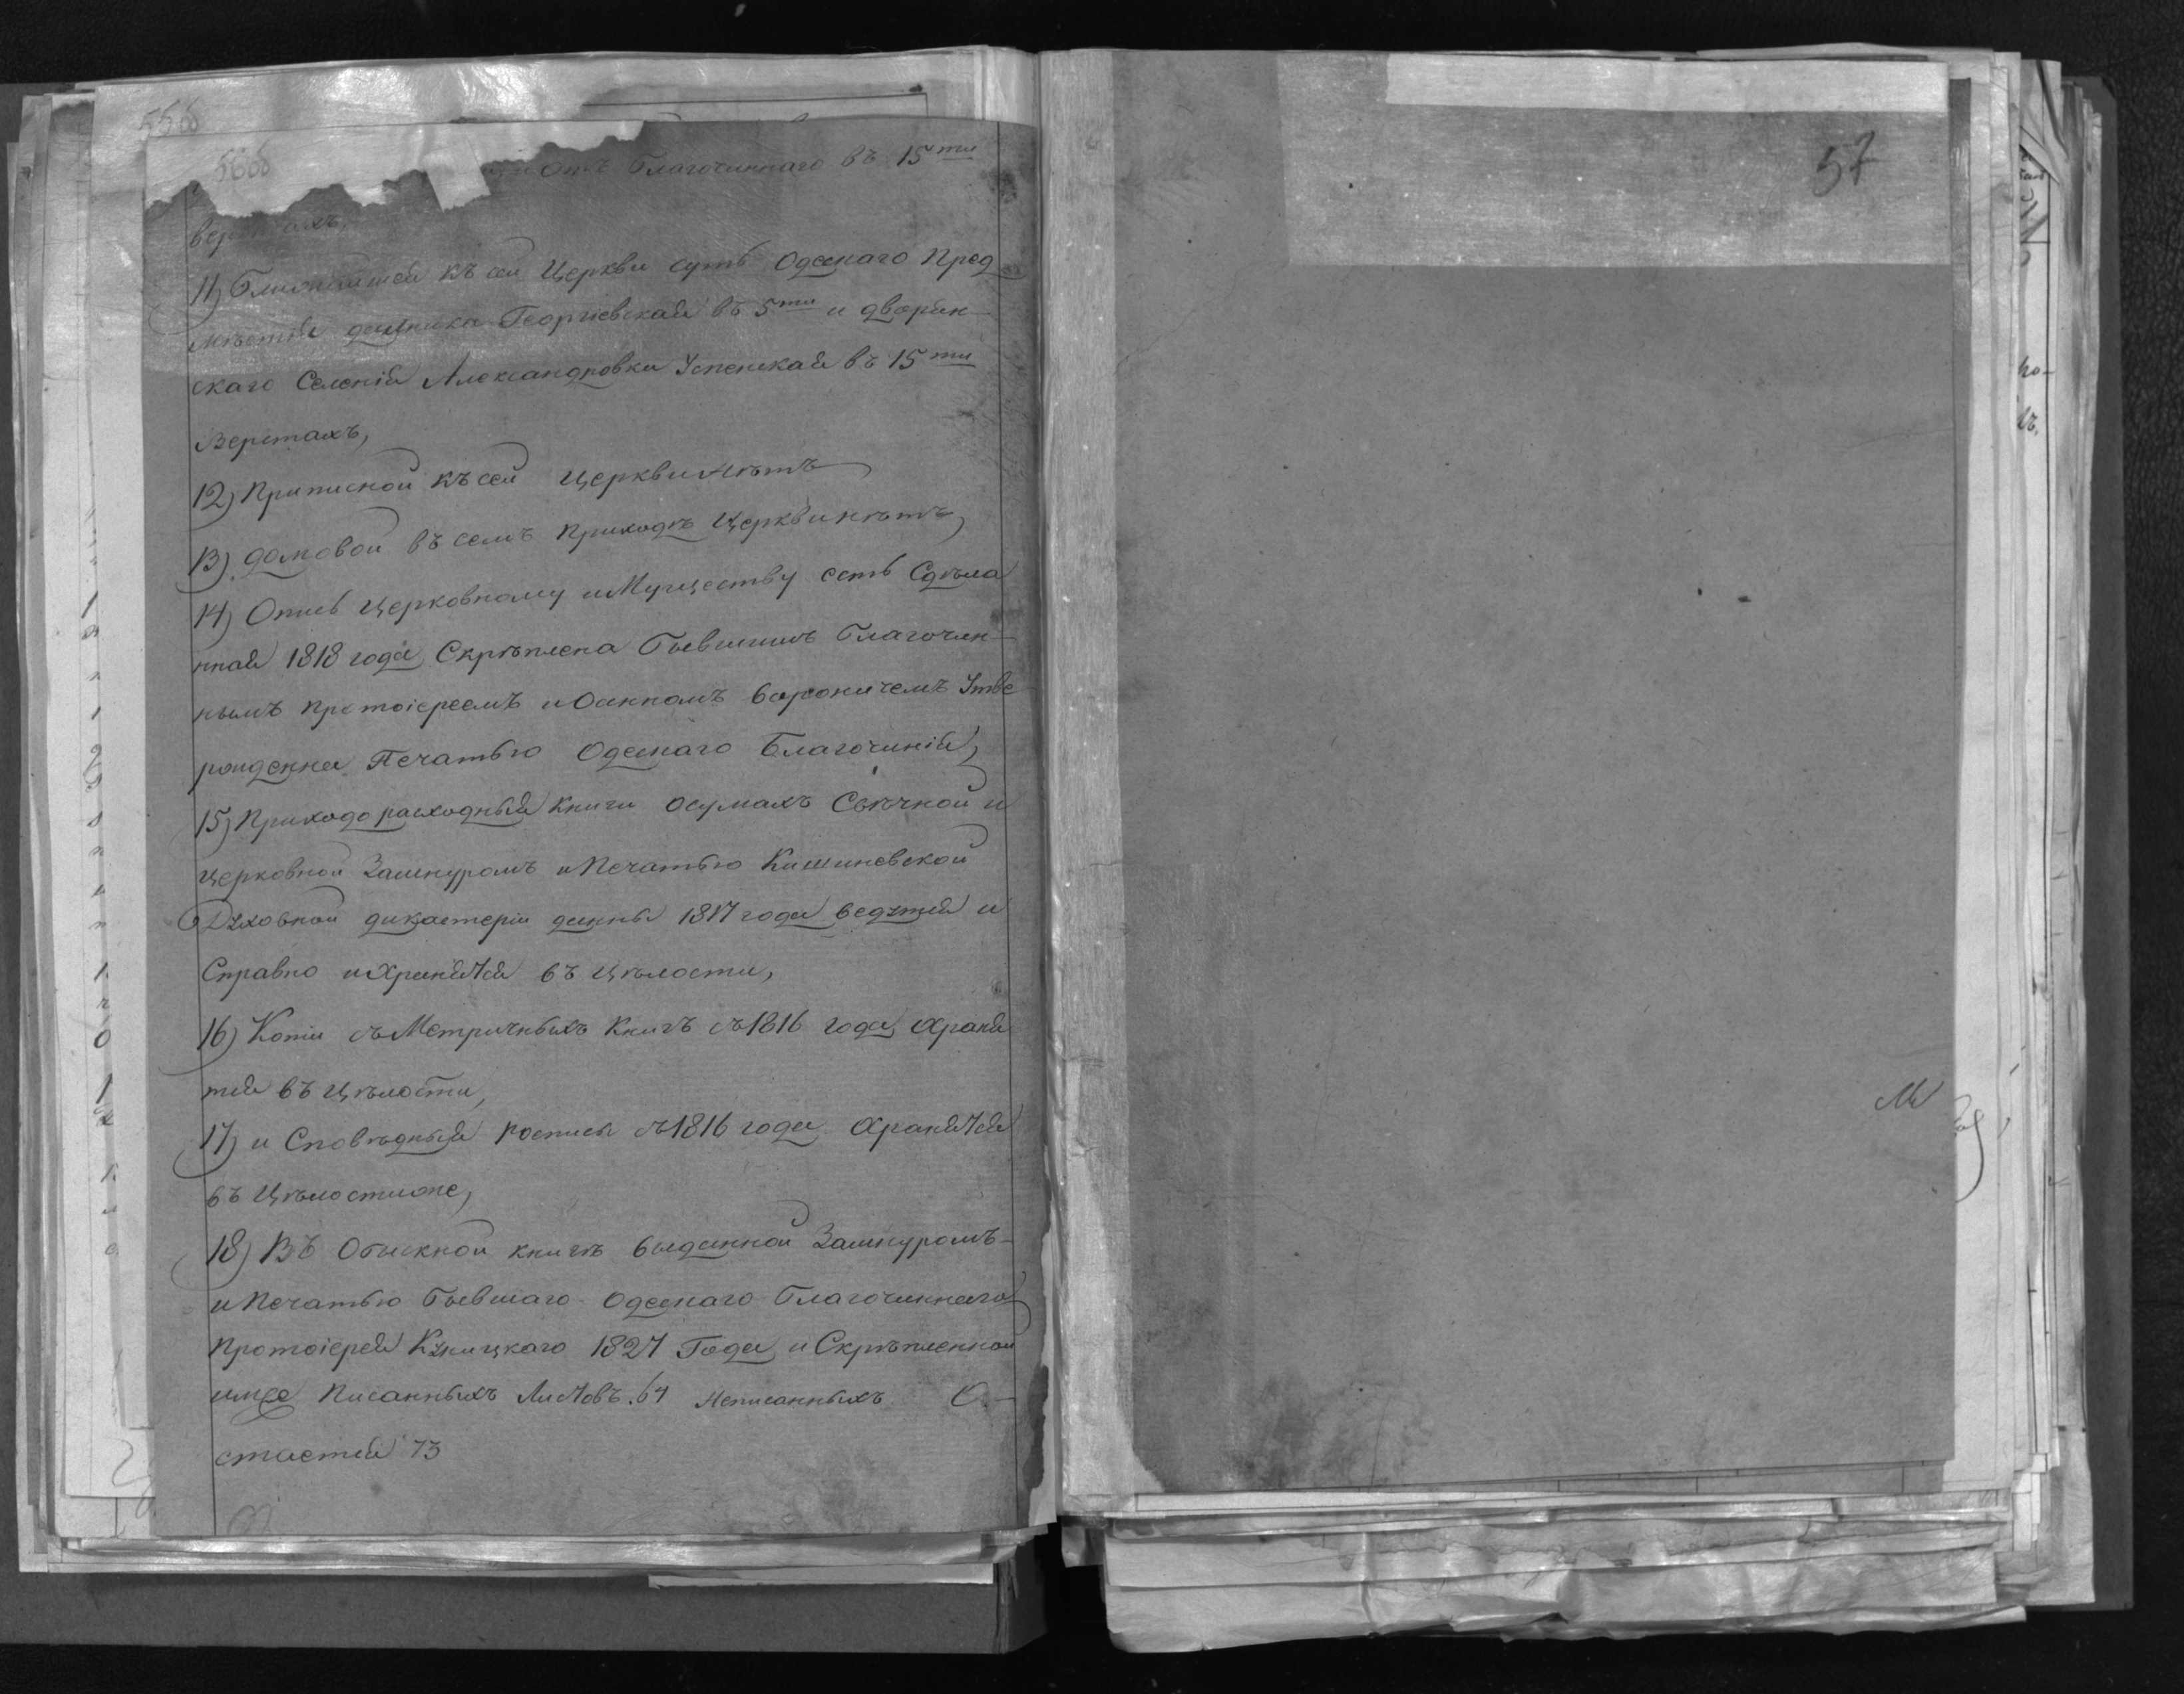 556
566
отъ Благочиннаго въ 15ти
11) Ближайшей къ сей Церкви суть Одескаго Пред
мѣстія дальника Георгіевская въ 5ти и дворян-
скаго Селенія Александровки Успенская въ 15ти
Верстахъ,
12) Приписной къ сей Церкви нѣтъ
13) домовой въ семъ приходѣ Церкви нѣтъ,
14) Опись церковному иМуществу есть Сдѣла
нная 1818 года, Скрѣплена Бывшимъ Благочин-
нымъ протоіереемъ иОанномъ Вороничемъ Утве
рождена Печатью Одескаго Благочинія,
15) Приходо расходныя Книги осумахъ Свѣчной и
церковной Зашнуромъ иПечатью Кишиневской
Духовной дикастеріи данны 1817 года ведутся и
Справно иХранятся въ цѣлости,
16) Копіи съ Метричныхъ Книгъ съ 1816 года, Храня
тся въ цѣлости,
17) и Сповѣдныя росписи съ 1816 года Хранятся
въ Цѣлостиже,
18) Въ Обыскной книгѣ выданной Зашнуромъ-
иПечатью Бывшаго Одескаго Благочиннаго
протоіерея Куницкаго 1827 Года, и Скрѣпленной
имже Писанныхъ Листовъ 64 неписанныхъ О-
стается 73
57